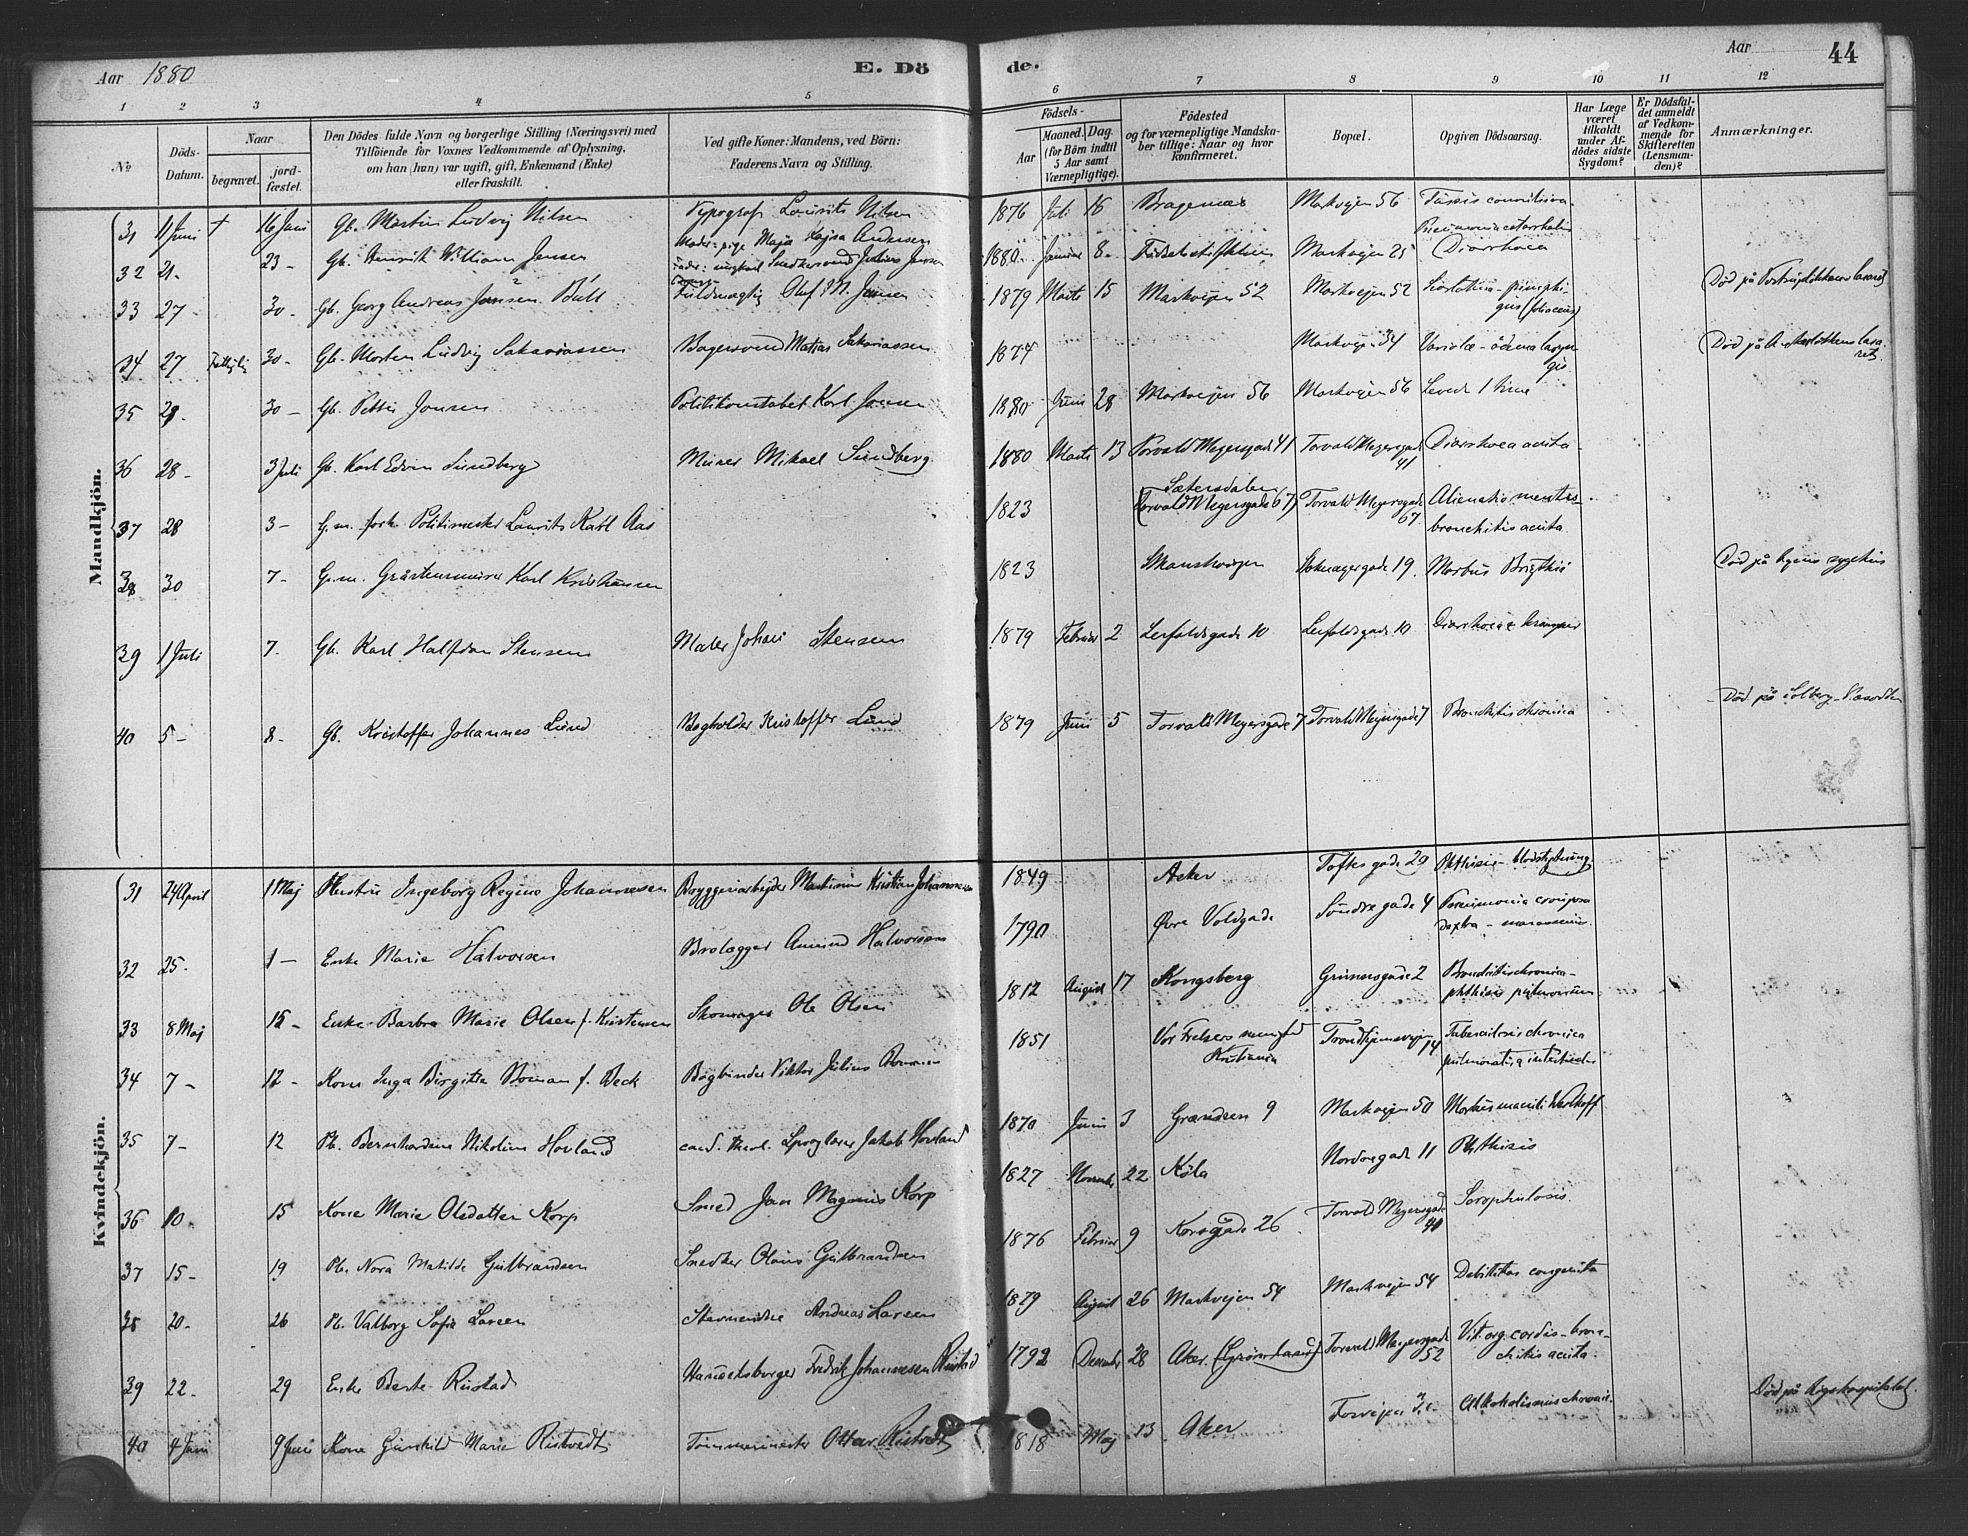 Aar 1880
E. Dö
de.
Aar
44
1
2
3
4
5
6
7
8
9
10
11
12
No
Döds-
Datum.
Naar
begravet.
jord-
fæstet.
Den Dödes fulde Navn og borgerlige Stilling (Næringsvei) med
Tilföiende for Voxnes Vedkommende af Oplysning,
om han (hun) var ugift, gift, Enkemand (Enke)
eller fraskilt.
Ved gifte Koner: Mandens, ved Börn:
Faderens Navn og Stilling.
Födsels-
Aar
Maaned. Dag.
(for Börn indtil
5 Aar samt
Værnepligtige).
Födested
og for værnepligtige Mandska-
ber tillige: Naar og hvor
konfirmeret.
Bopæl.
Opgiven Dödsaarsag.
Har Læge
været
tilkaldt
under Af-
dödes sidste
Sygdom?
Er Dödsfal-
det anmeldt
af Vedkom-
mende for
Skifteretten
(Lensman-
den)?
Anmærkninger.
Mandkjön.
31 11 Juni + 16 Juni Gb. Martin Ludvig Nilsen Typograf Laurits Nilsen 1876 Juli 16 Bragernæs Markvejen 56 Tussis convulsiva
Pneumonia catarrhalis
32 21- 23- Gb. Henrik Villiam Jensen Moder: pige Maja Kajsa Andersen
Fader: ungkarl Snedkersvend Julius Jensen 1880 Januar 8 Födselsstiftelsen Markvejen 25 Diarrhoea
33 27 30- Gb. Georg Andreas Jansen Bull Fuldmægtig Oluf M. Jansen 1879 Marts 15 Markvejen 52 Markvejen 52 Scarlatina - pemphi-
gus (foliaceus)
34 27 30- Gb. Morten Ludvig Sakariassen Bagersvend Matias Sakariassen 1874 Markvejen 34 Variolæ - ödema laryn-
gis Död på
35 28 30- Gb. Petter Jansen Politikonstabel Karl Jansen 1880 Juni 28 Markvejen 56 Markvejen 56 Levede 1 time
36 28- 3 Juli Gb. Karl Edvin Sundberg Murer Mikael Sundberg 1880 Marts 13 Torvald Meyersgade 41 Torvald Meyersgade
41 Diarrhoea acuta
37 28 3- G.m. forh. Politimester Laurits Karl Aas 1823 Sætersdalen
(Torvald Meyersgade 67) Torvald Meyersgade
67 Alienatio mentis-
bronchitis acuta
38 30 7- G.m. Gråstensmurer Karl Kristiansen 1823 19 Morbus Brigthii Död på sygehus
39 1 Juli 7- Gb. Karl Halfdan Stensen Maler Johan Stensen 1879 Februar 2 Leirfaldsgade 10 Leirfaldsgade 10 Diarrhoea & kramper
40 5- 8- Gb. Kristoffer Johannes Lund Bogholder Kristoffer Lund 1879 Juni 5 Torvald Meyersgade 7 Torvald Meyersgade 7 Bronchitis chronica Död på Solberg
Kvindekjön.
31 24 April 1 Maj Hustru Ingeborg Regine Johannesen Bryggeriarbejder Martinius Kristian Johannesen 1849 Aker Toftes gade 29 Phthisis - blodstyrtning
32 25- 1- Enke Marie Halvorsen Brolægger Amund Halvorsen 1790 Övre Voldgade Söndre gade 4 Pneumonia crouposa
dextra - marasmus
33 8 Maj 12- Enke Barbra Marie Olsen f. Kristensen Skomager Ole Olsen 1812 August 17 Kongsberg Grünersgade 2 Bronchitis chronica -
phthisis pulmonum
34 7- 12- Kone Inga Birgitte Boman f. Beck Bogbinder Viktor Julius Boman 1851 Vor Frelsers menighed
Kristiania Trondhjemsvejen
14 Tuberculosis chronica
35 7- 12 Pb. Bernhardine Nikoline Hovland cand. theol. Sproglærer Jakob Hovland 1870 Juni 3 Grændsen 9 Markvejen 50 Morbus maculi Werlhoff
36 10- 15 Kone Marie Olsdatter Korp Smed Jan Magnus Korp 1827 November 22 Köla Nordregade 11 Phthisis
37 15- 19 Pb. Nora Matilde Gulbrandsen Snedker Olaus Gulbrandsen 1876 Februar 9 Korsgade 26 Torvald Meyersgade
40 Scrophulosis
38 20- 26 Pb. Valborg Sofie Larsen Andreas Larsen 1879 August 26 Markvejen 54 Markvejen 54 Debilitas congenita
39 22- 29 Enke Berte Rustad Handelsborger Fredrik Johannesen Rustad 1792 December 28 Aker (Grönland) Torvald Meyersgade
52 Vit. org. cordis - bron-
chitis acuta
40 4 Juni 9 Juni Kone Gunhild Marie Ristvedt Tömmermester Ottar Ristvedt 1818 Maj 13 Aker Alkoholismus chronic. Död på Rigshospitalet.